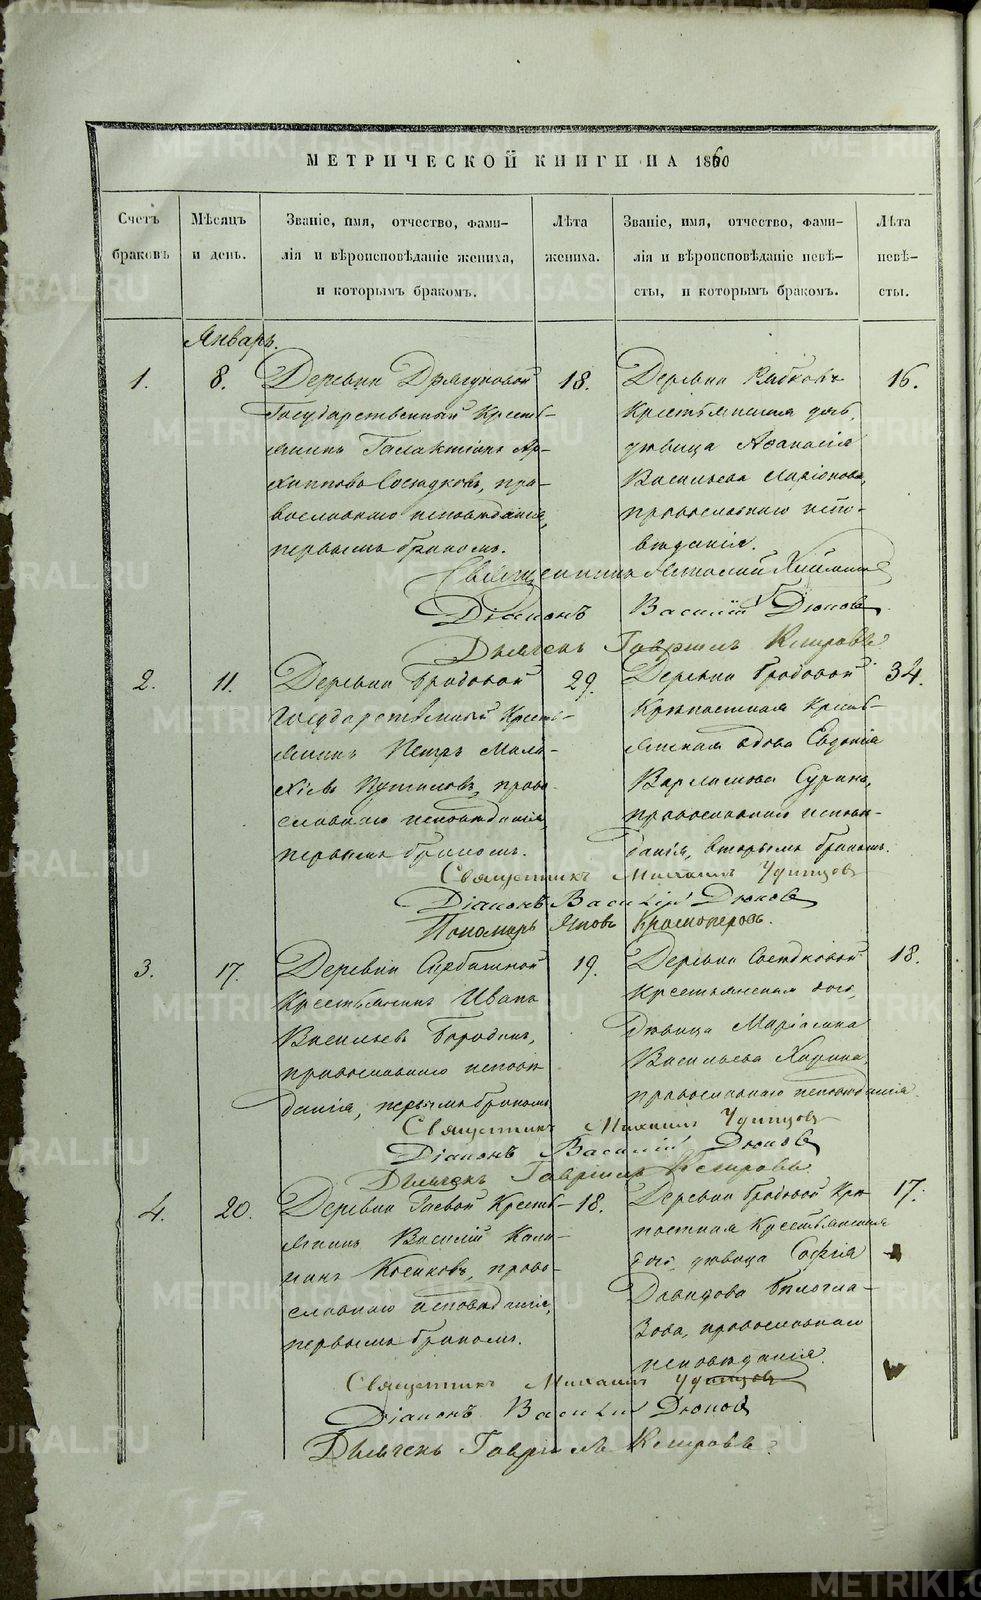 МЕТРИЧЕСКОЙ КНИГИ НА 1860
Счетъ браковъ
Мѣсяцъ и день.
Званіе, имя, отчество, фами-
лія и вѣроисповѣданіе жениха,
и которымъ бракомъ.
Лѣта жениха.
Званіе, имя, отчество, фами-
лія и вѣроисповѣданіе невѣ-
сты, и которымъ бракомъ.
Лѣта невѣ-
сты.
Январь.
1.
8.
Деревни
Государственный Кресть-
янинъ Галактіонъ Ар-
хиповъ пра-
вославнаго исповѣданія,
первымъ бракомъ.
18.
Деревни
Крестьянская дочь,
дѣвица Аѳанасія
Васильева Ларіонова,
православнаго испо-
вѣданія.
16.
Священникъ
Діаконъ Василій Дюковъ
Дьячекъ Гавріилъ
2.
11.
Деревни Бродовой
Государственный Кресть-
янинъ Петръ Мала-
хіевъ право-
славнаго исповѣданія,
первымъ бракомъ.
29.
Деревни Бродовой
Крѣпостная Кресть-
янская вдова Евдокія
Варламова Сурина,
православнаго исповѣ-
данія, вторымъ бракомъ.
34.
Священникъ Михаилъ Удинцовъ
Діаконъ Василій Дюковъ
Пономарь Яковъ Красноперовъ.
3.
17.
Деревни
Крестьянинъ Иванъ
Васильевъ Бородинъ,
православнаго исповѣ-
данія, первымъ бракомъ
19.
Деревни
Крестьянская дочь,
дѣвица Маріамна
Васильева Харина,
православнаго исповѣданія.
18.
Священникъ Михаилъ Удинцовъ
Діаконъ Василій Дюковъ
Дьячекъ Гавріилъ
4.
20.
Деревни Гаевой Кресть-
янинъ Василій Кали-
нинъ Косиковъ, право-
славнаго исповѣданія,
первымъ бракомъ.
18.
Деревни Бродовой Крѣ-
постная Крестьянская
дочь, дѣвица Софія
Давидова Бѣлогла-
зова, православнаго
исповѣданія.
17.
Священникъ Михаилъ Удинцовъ
Діаконъ Василій Дюковъ
Дьячекъ Гавріилъ
METRIKI.GASO-URAL.RU